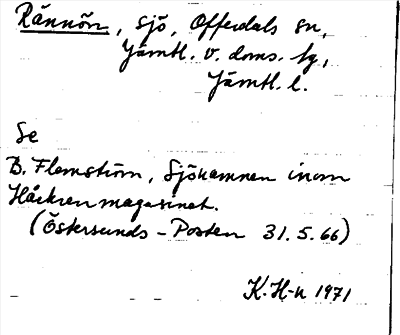 Rännön, sjö, Offerdals sn,
Jämtl. v. doms. tg,
Jämtl. l.
Se
B. Flemström, Sjönamnen inom
Håckrenmagasinet.
(Östersunds-Posten 31.5.66)
K. H-n 1971